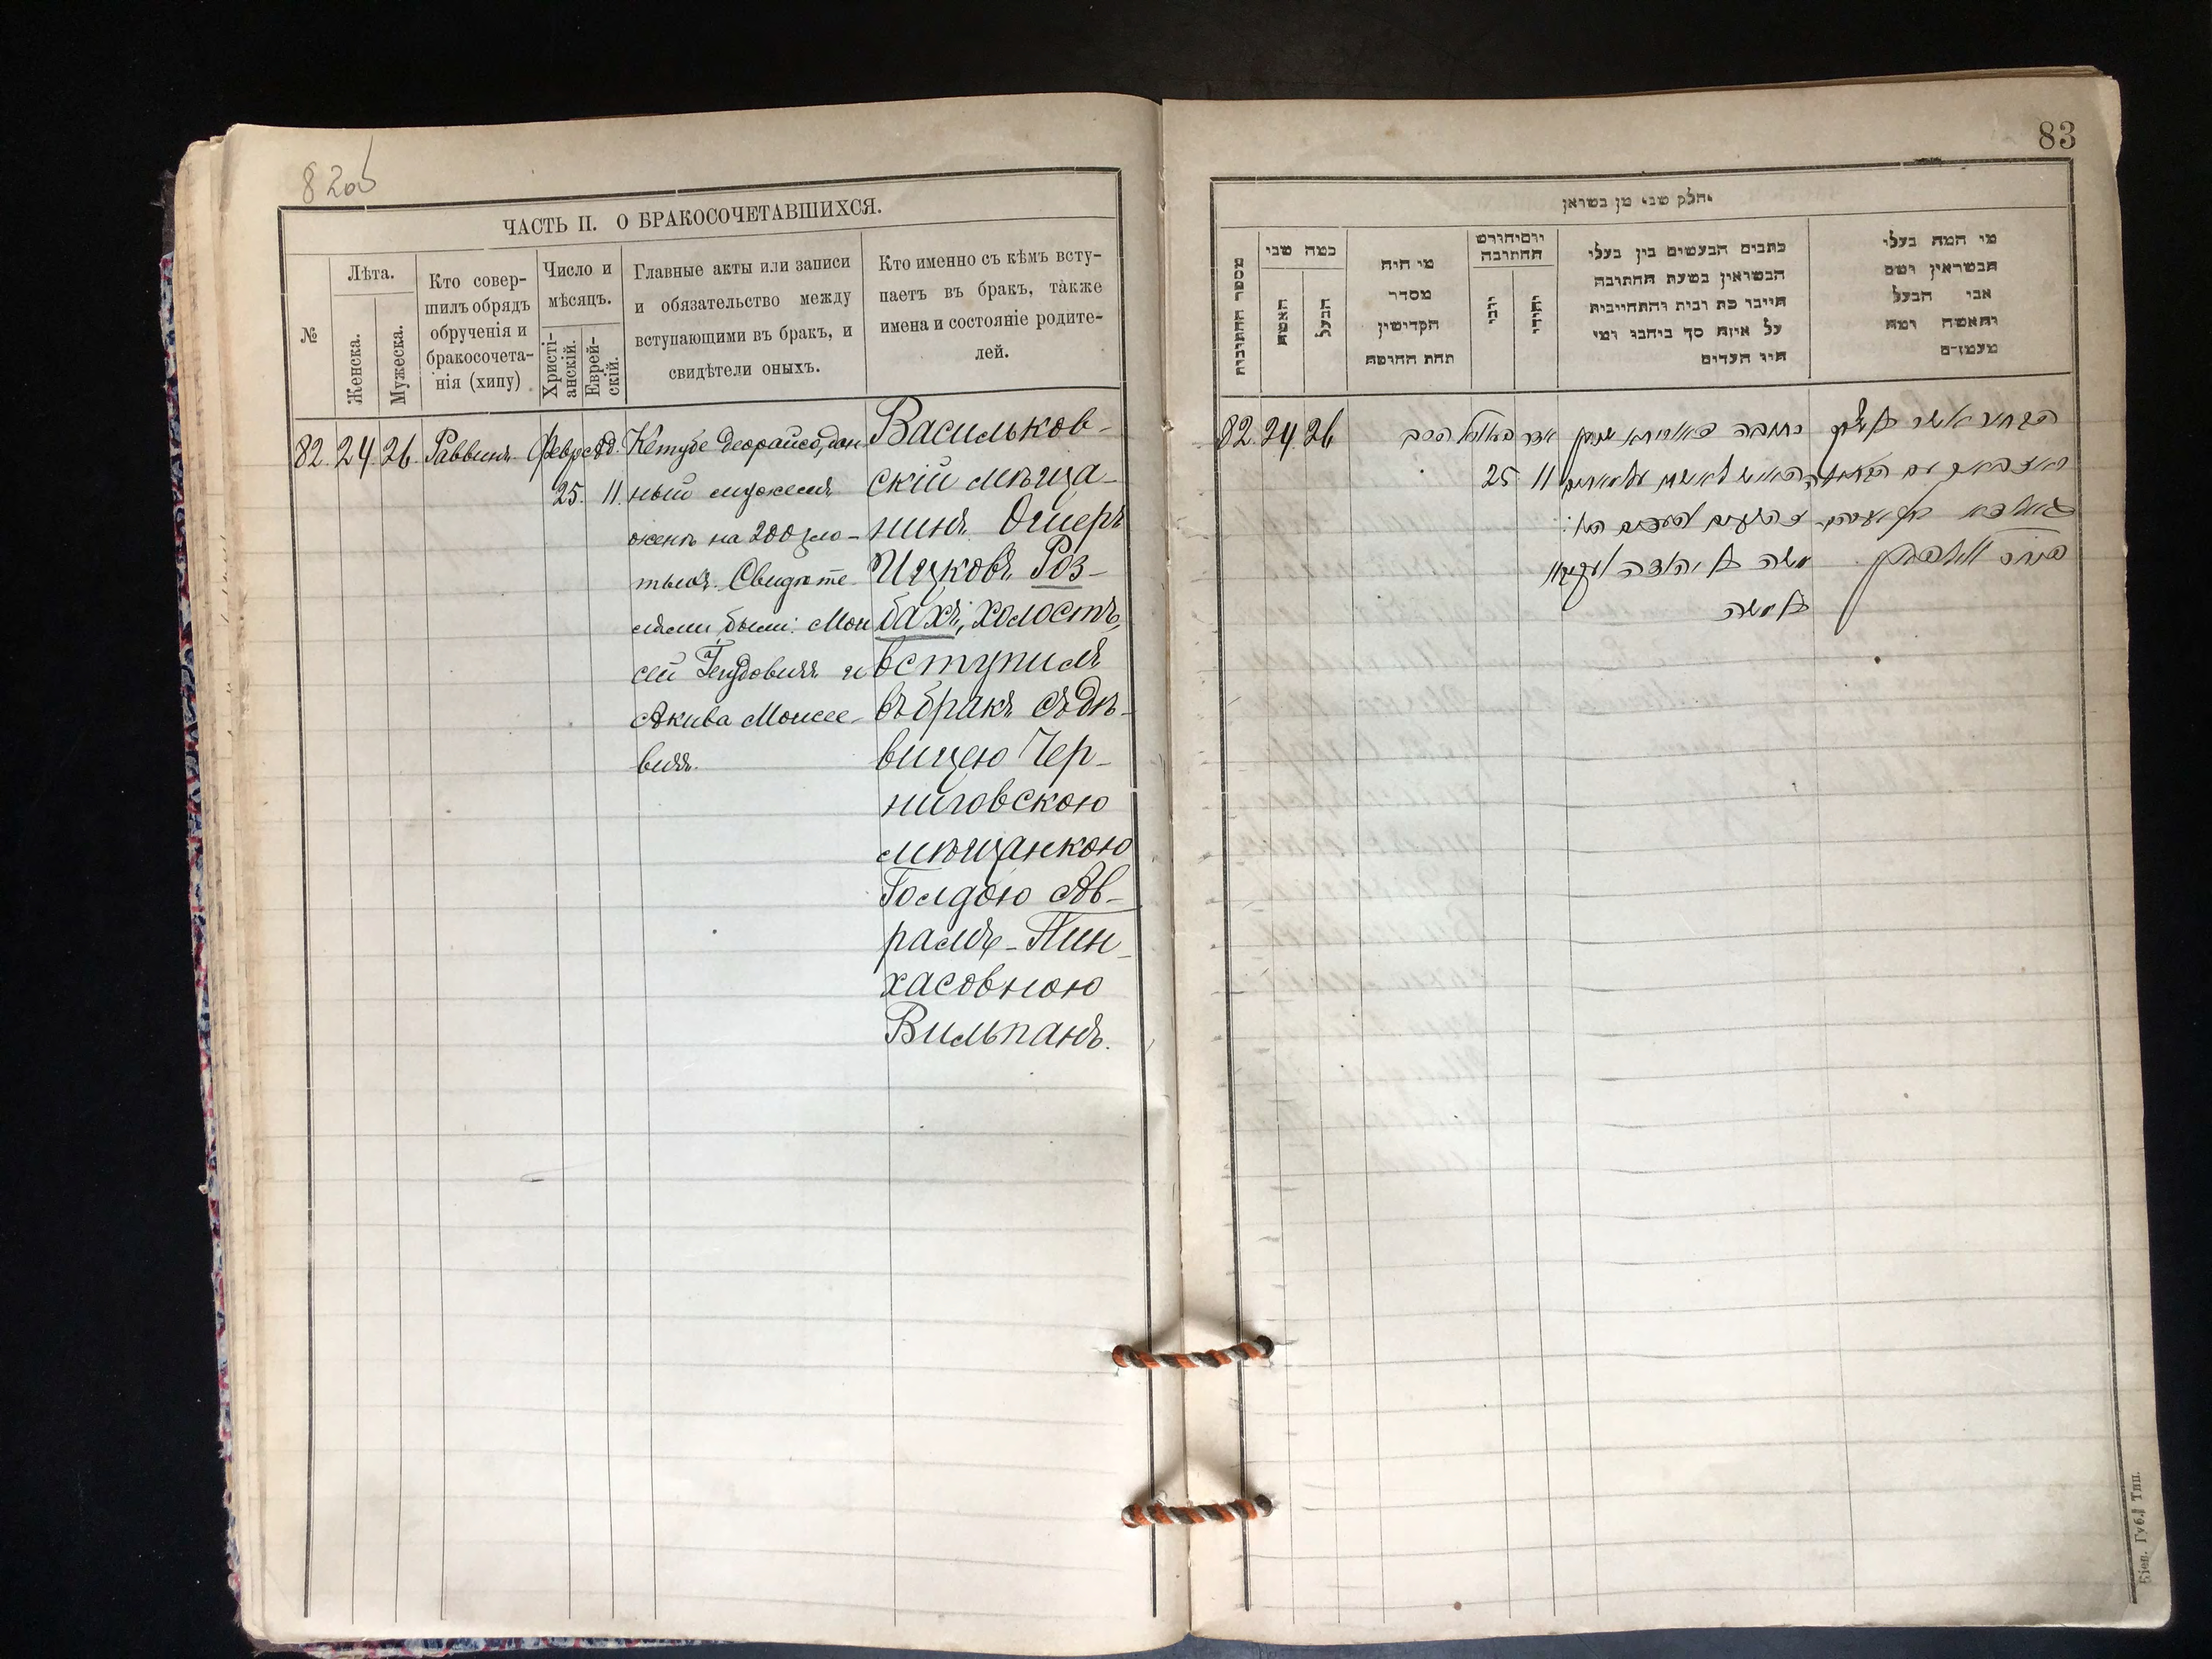 82об
ЧАСТЬ II. О БРАКОСОЧЕТАВШИХСЯ.
№
Лѣта.
Женска.
Мужеска.
Кто совер-
шилъ обрядъ
обрученія и
бракосочета-
нія (хипу)
Число и
мѣсяцъ.
Христі-
анскій.
Еврей-
скій.
Главные акты или записи
и обязательство между
вступающими въ бракъ, и
свидѣтели оныхъ.
Кто именно съ кѣмъ всту-
паетъ въ бракъ, также
имена и состояніе родите-
лей.
82. 24. 26. Раввинъ. Февр. Ад.
25. 11.
Кетубе деорайсо, дан
ный мужемъ
женѣ на 200 зло-
тыхъ. Свидѣте
лями были: Мои
сей Гендовичъ и
Акива Моисее-
вичъ.
Васильков-
скій мѣща-
нинъ Ошеръ
Ицковъ Роз-
бахъ, холостъ,
вступилъ
въ бракъ съ дѣ-
вицею Чер-
ниговскою
мѣщанкою
Голдою Ав-
рамъ-Пин-
хасовною
Вильпанъ.
83
חלק שני מן נשואין
מספר החתונות
כמה שני
האשה
הבעל
מי היה
מסדר
הקדישין
תחת החופה
יום וחודש
החתונה
נוצרי
יהודי
כתבים הנעשים בין בעלי
הנשואין בשעת החתונה
היינו כת ובית והתחייבות
על איזה סך ביחבו ומי
היו העדים
מי המה בעלי
הנשואין ושם
אבי הבעל
והאשה ומה
מעמדם
82. 24. 26
הרב
אדר
25 11
כתובה דאורייתא
משה בן יהודה
בן משה
הבחור אשר בן איצק
Кіев. Губ. Тип.